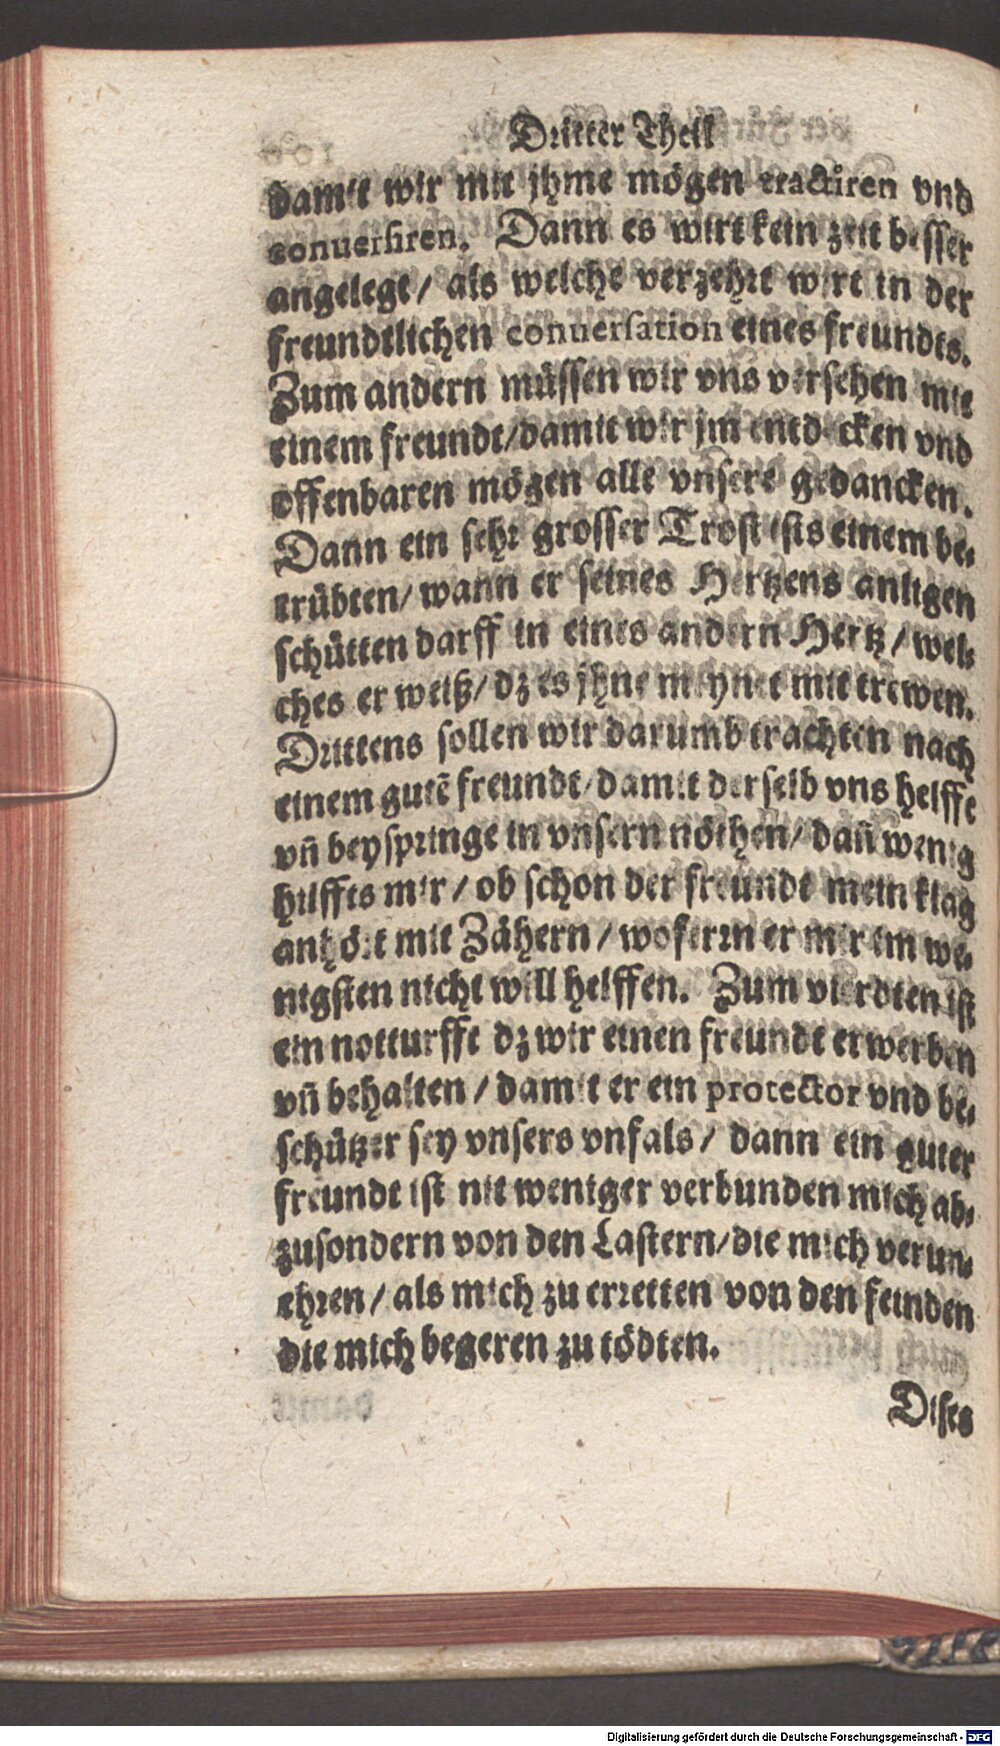 Dritter Theil
damit wir mit jhme mögen tractiren vnd
conuersiren. Dann es wirt kein zeit besser
angelegt / als welche verzehrt wirt in der
freundtlichen conuersation eines freundts.
Zum andern müssen wir vns versehen mit
einem freundt / damit wir jm entdecken vnd
offenbaren mögen alle vnsere gedancken.
Dann ein sehr grosser Trost ists einem be-
trübten / wann er seines Hertzens anligen
schütten darff in eines andern Hertz / wel-
ches er weiß / dz es jhne meynet mit trewen.
Drittens sollen wir darumb trachten nach
einem gutẽ freundt / damit derselb vns helffe
vñ beyspringe in vnsern nöthen / dañ wenig
hilffts mir / ob schon der freundt mein klag
anhört mit Zähern / woferrn er mir im we-
nigsten nicht will helffen. Zum vierdten ist
ein notturfft dz wir einen freundt erwerben
vñ behalten / damit er ein protector vnd be-
schützer sey vnsers vnfals / dann ein guter
freundt ist nit weniger verbunden mich ab-
zusondern von den Lastern / die mich verun-
ehren / als mich zu erretten von den feinden
die mich begeren zu tödten.
Dises
Digitalisierung gefördert durch die Deutsche Forschungsgemeinschaft - DFG